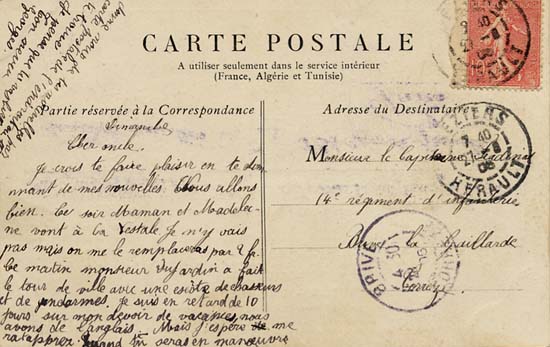 CARTE POSTALE
A utiliser seulement dans le service intérieur
(France, Algérie et Tunisie)
Partie réservée à la Correspondance
Adresse du Destinataire
Dimanche
Cher oncle.
Je crois te faire plaisir en te don
nant de mes nouvelles. Nous allons
bien. Ce soir Maman et Madelei-
ne vont à la Vestale. Je n'y vais
pas mais on me le remplacera par
Ce matin monsieur Dujardin a fait
le tour de ville avec une escorte de chasseurs
et de gendarmes. Je suis en retard de 10
jours sur mon devoir de vacances, nous
avons de l'anglais. Mais j'espère me
rattraper. Quand tu seras en manœuvre
donne nous de tes nouvelles par
carte postale de l'endroit où
tu te trouves
Je pense que
Ton neveu
Georges
Monsieur le Capitaine
14e régiment d'infanterie
Brive la Gaillarde
Corrèze
BEZIERS
7 40
HERAULT
BRIVE